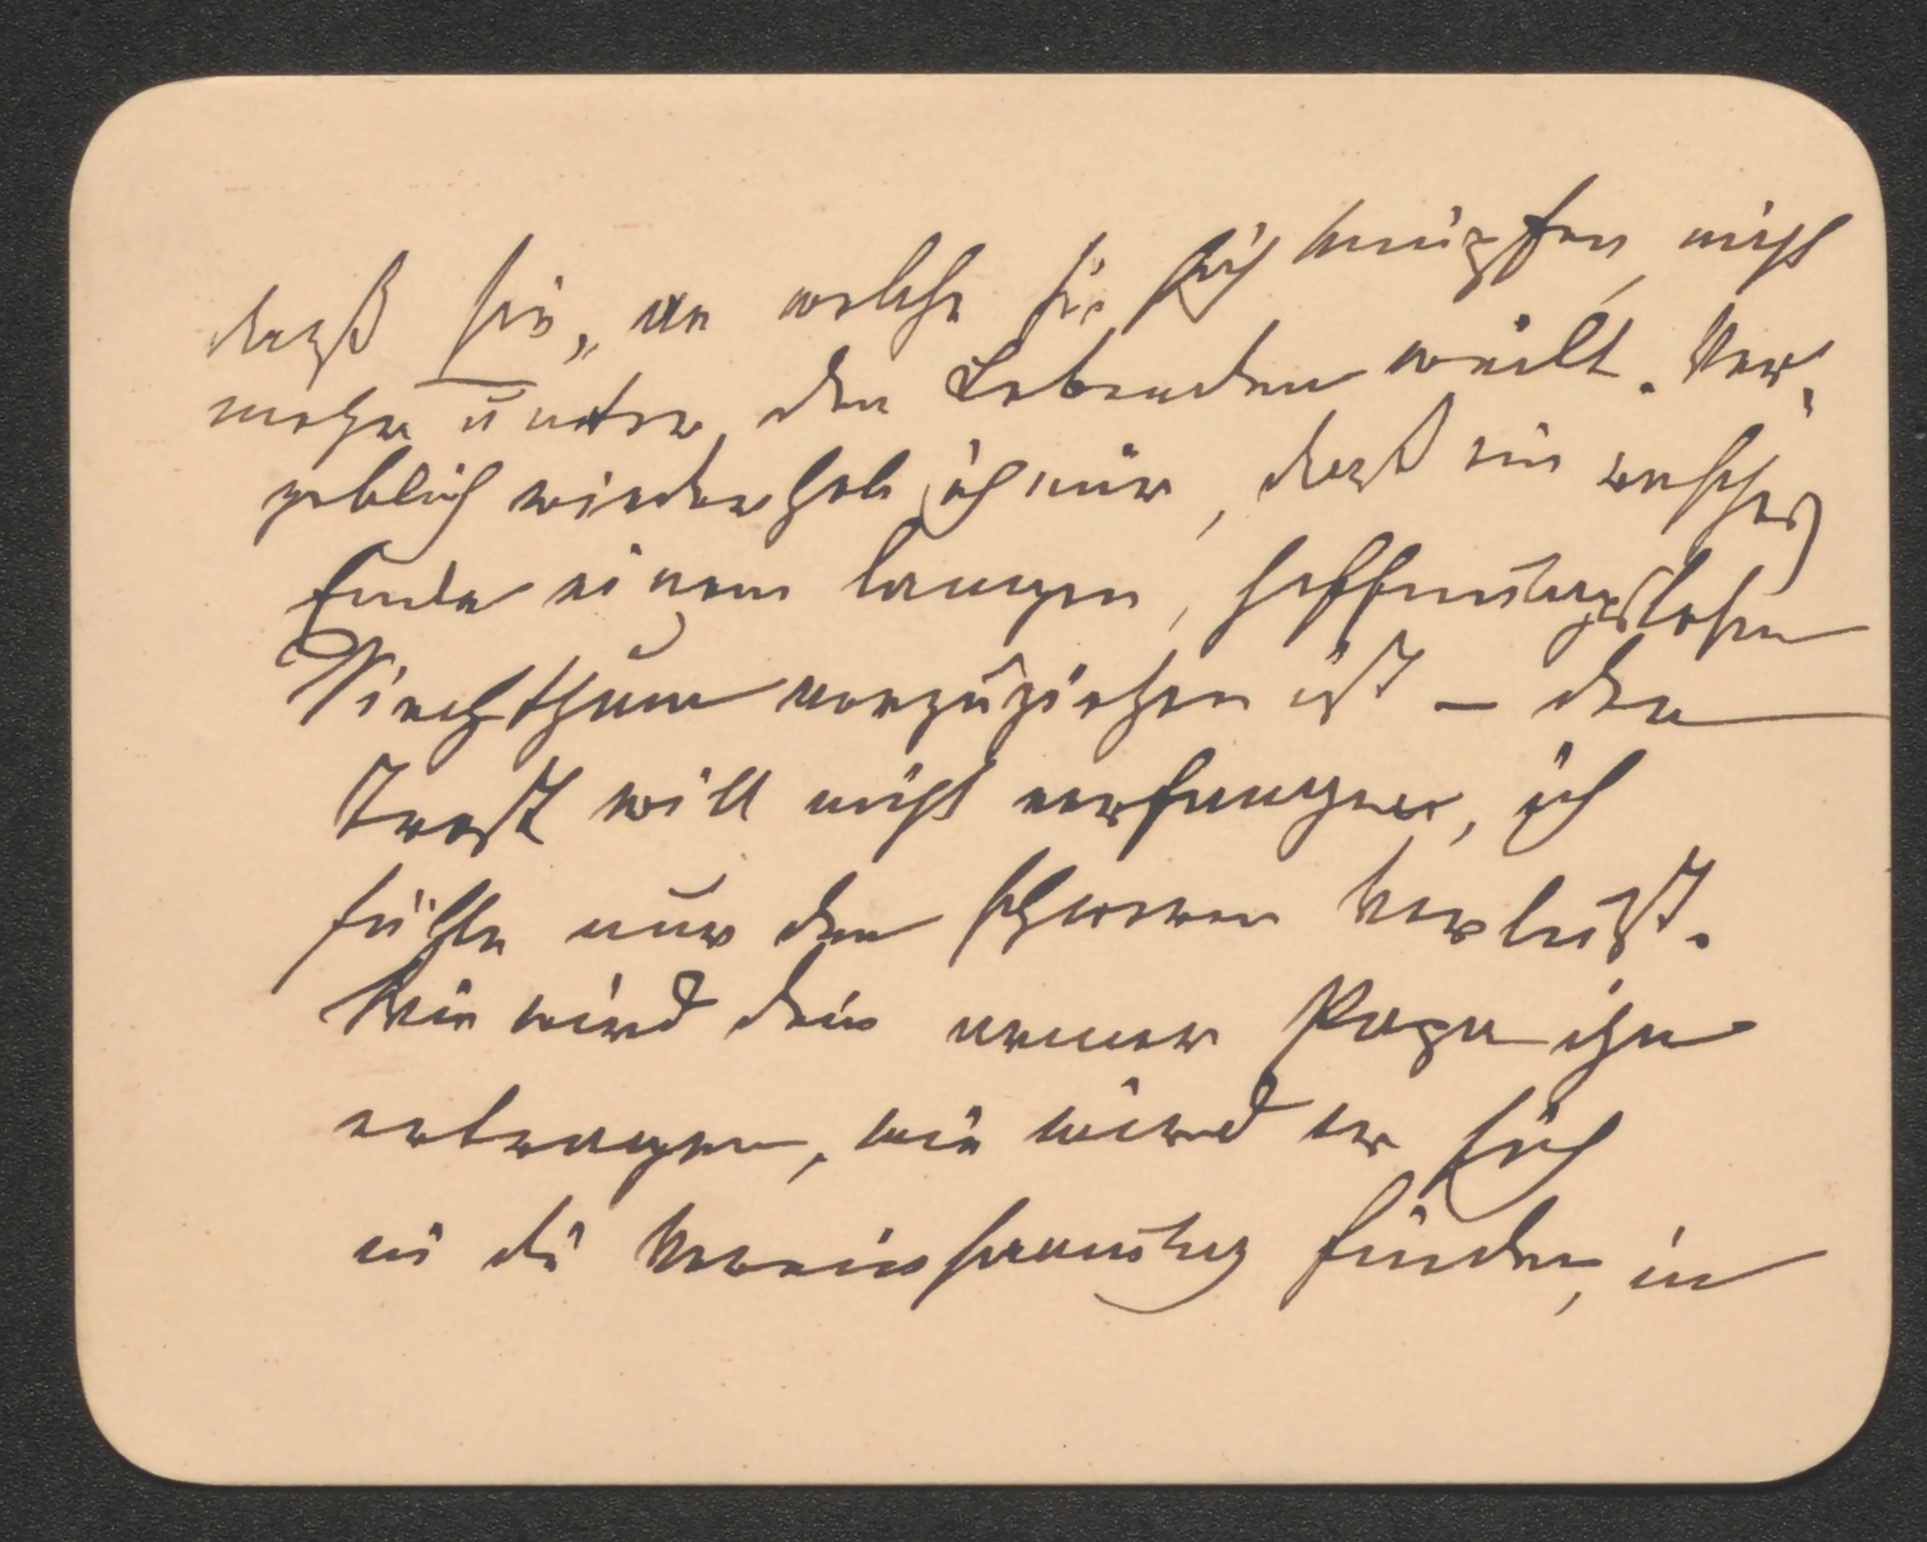 daß sie, an welche sie sich knüpfen, nicht
mehr unter den Lebenden weilt. Ver-
geblich wiederhole ich mir, daß ein rasches
Ende einem langen, hoffnungslosen
Siechthum vorzuziehen ist – der
Trost will nicht verfangen, ich
fühle nur den schweren Verlust.
Wie wird dein armer Papa ihn
ertragen, wie wird er sich
in die Vereinsamung finden, in